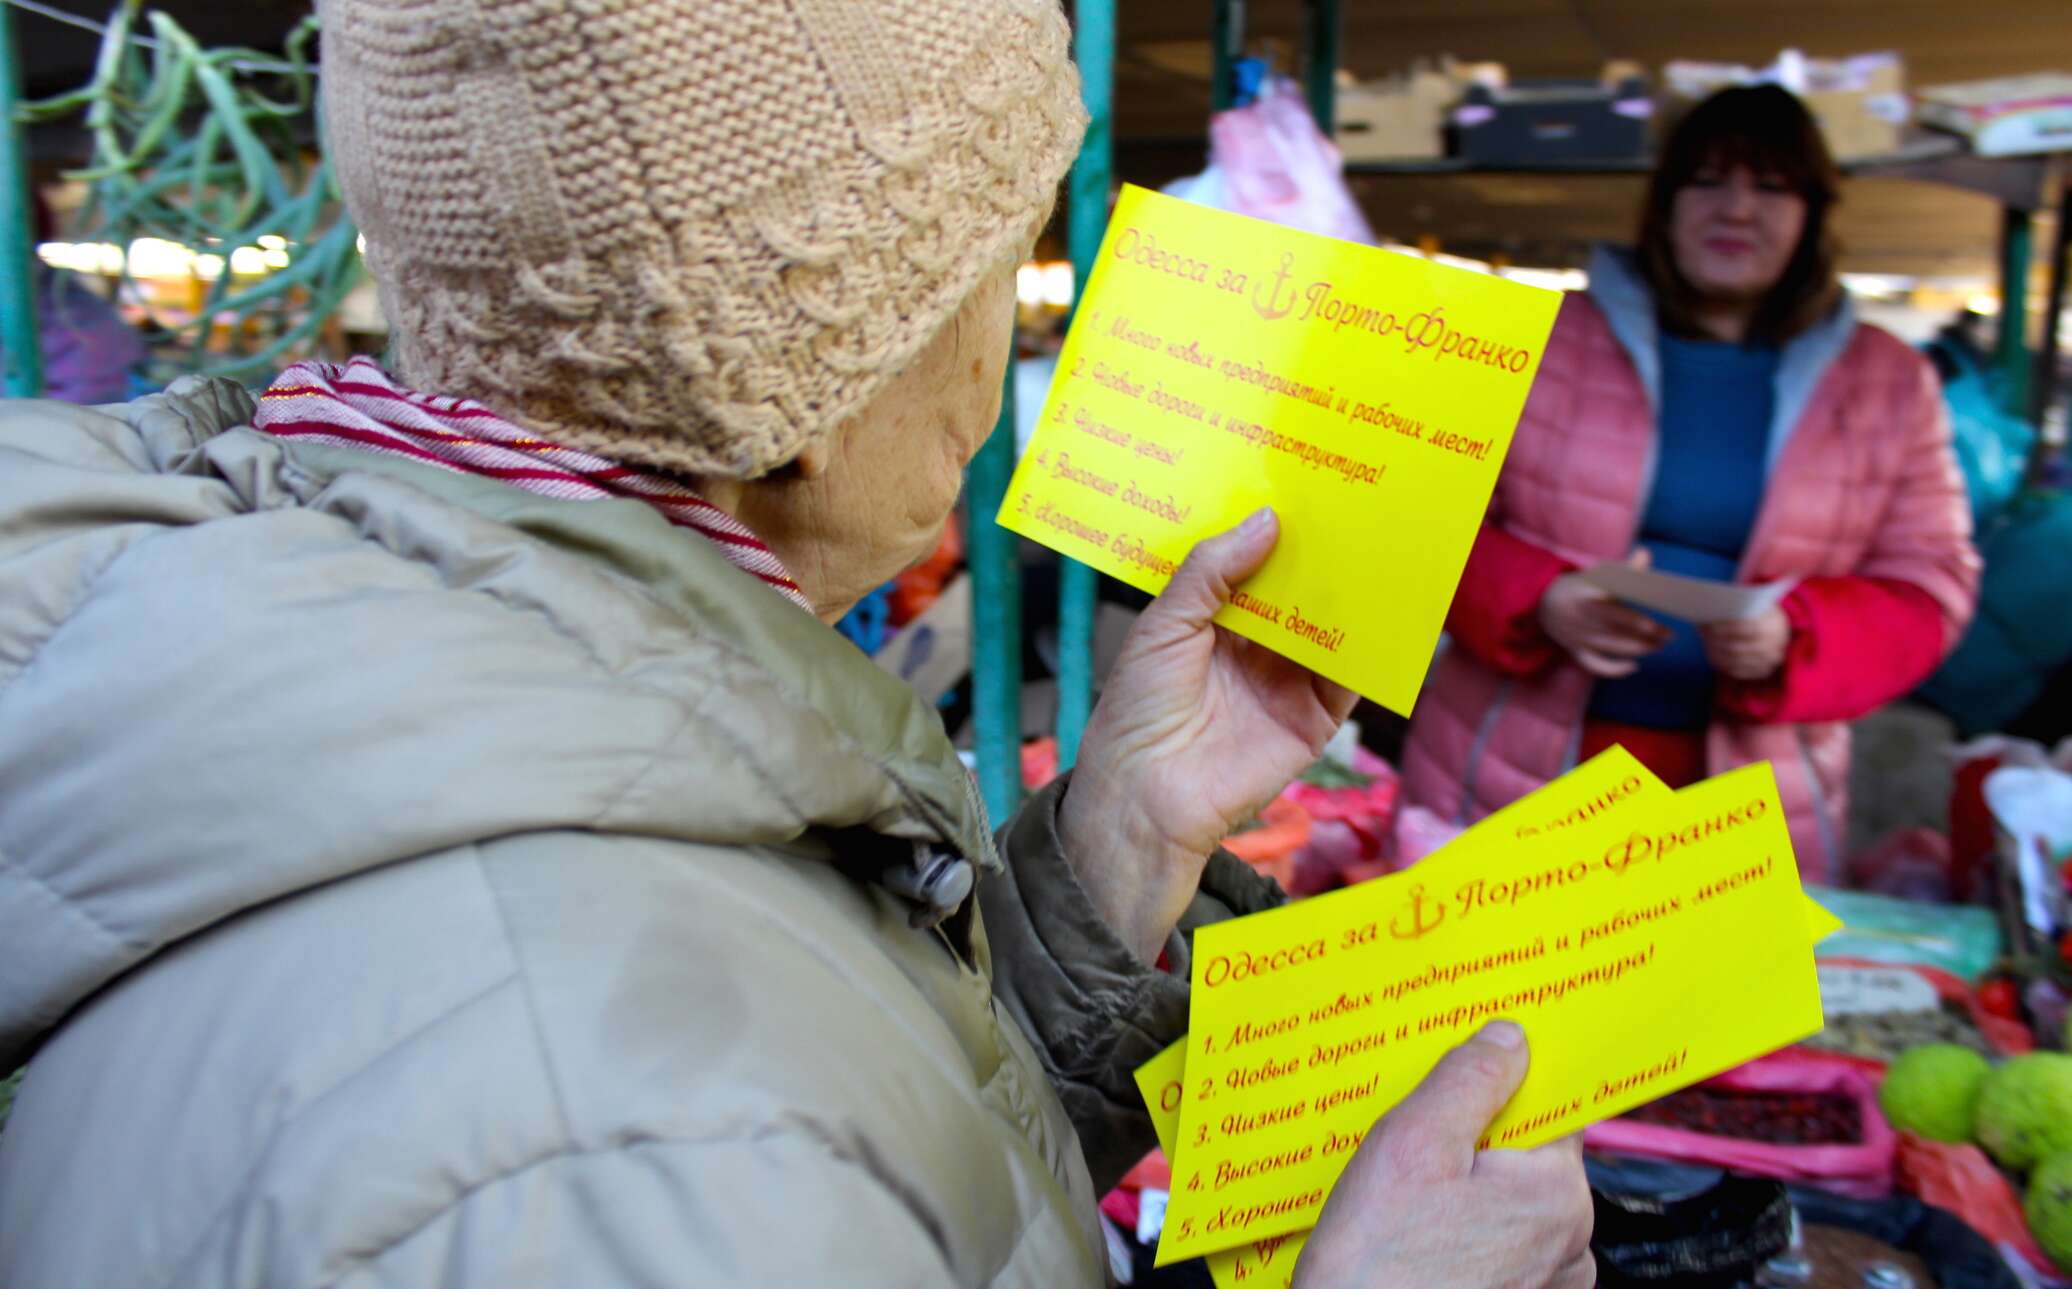 Одесса за Порто-Франко
1. Много новых предприятий и рабочих мест!
2. Новые дороги и инфраструктура!
3. Низкие цены!
4. Высокие доходы!
5. Хорошее будущее наших детей!
Франко
Одесса за Порто-Франко
1. Много новых предприятий и рабочих мест!
2. Новые дороги и инфраструктура!
3. Низкие цены!
4. Высокие дох
5. Хорошее наших детей!
О
4. В